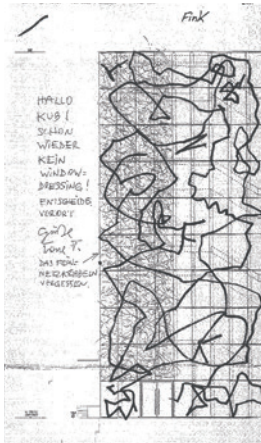 Fink
HALLO
KUB!
SCHON
WIEDER
KEIN
WINDOW=
DRESSING!
ENTSCHEIDE
VORORT
Grüße
DAS FEIN=
VERGESSEN.